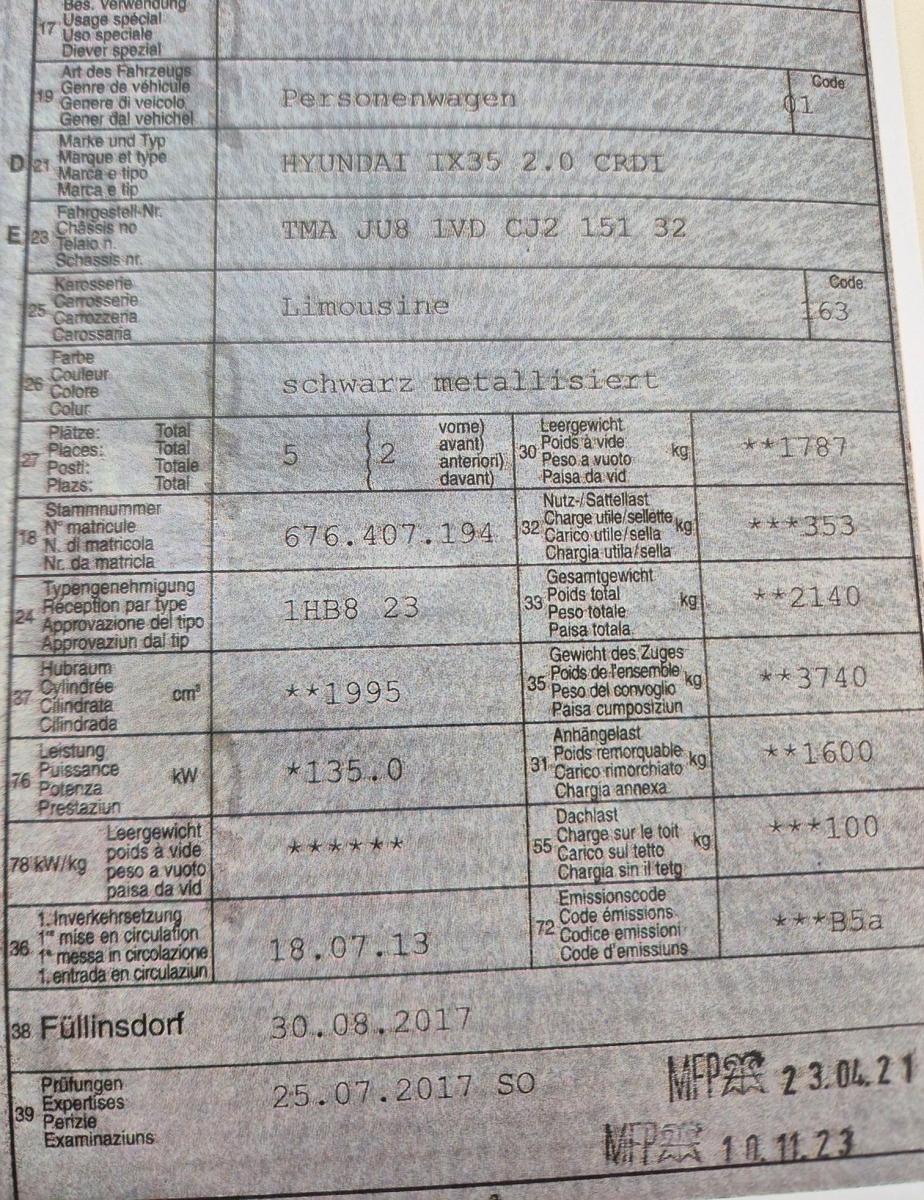 Bes. Verwendung
17 Usage spécial
Uso speciale
Diever spezial
Art des Fahrzeugs
19 Genre de véhicule
Genere di veicolo
Gener dal vehichel
Personenwagen
Code
01
D 21 Marke und Typ
Marque et type
Marca e tipo
Marca e tip
HYUNDAI IX35 2.0 CRDI
E 23 Fahrgestell-Nr.
Châssis no
Telaio n.
Schassis nr.
TMA JU8 1VD CJ2 151 32
25 Karosserie
Carrosserie
Carrozzeria
Carossaria
Limousine
Code
163
26 Farbe
Couleur
Colore
Colur
schwarz metallisiert
27 Plätze: Total
Places: Total
Posti: Totale
Plazs: Total
5 ( 2
vorne)
avant)
anteriori)
davant)
30 Leergewicht
Poids à vide
Peso a vuoto
Paisa da vid
kg
**1787
18 Stammnummer
N° matricule
N. di matricola
Nr. da matricla
676.407.194
32 Nutz-/Sattellast
Charge utile/sellette
Carico utile/sella
Chargia utila/sella
kg
***353
24 Typengenehmigung
Réception par type
Approvazione del tipo
Approvaziun dal tip
1HB8 23
33 Gesamtgewicht
Poids total
Peso totale
Paisa totala
kg
**2140
37 Hubraum
Cylindrée
Cilindrata
Cilindrada
cm³
**1995
35 Gewicht des Zuges
Poids de l'ensemble
Peso del convoglio
Paisa cumposiziun
kg
**3740
76 Leistung
Puissance
Potenza
Prestaziun
kW
*135.0
31 Anhängelast
Poids remorquable
Carico rimorchiato
Chargia annexa
kg
**1600
78 kW/kg
Leergewicht
poids à vide
peso a vuoto
paisa da vid
******
55 Dachlast
Charge sur le toit
Carico sul tetto
Chargia sin il tetg
kg
***100
36 1. Inverkehrsetzung
1re mise en circulation
1a messa in circolazione
1. entrada en circulaziun
18.07.13
72 Emissionscode
Code émissions
Codice emissioni
Code d'emissiuns
***B5a
38 Füllinsdorf
30.08.2017
39 Prüfungen
Expertises
Perizie
Examinaziuns
25.07.2017 SO
MFP 23.04.21
MFP 10.11.23